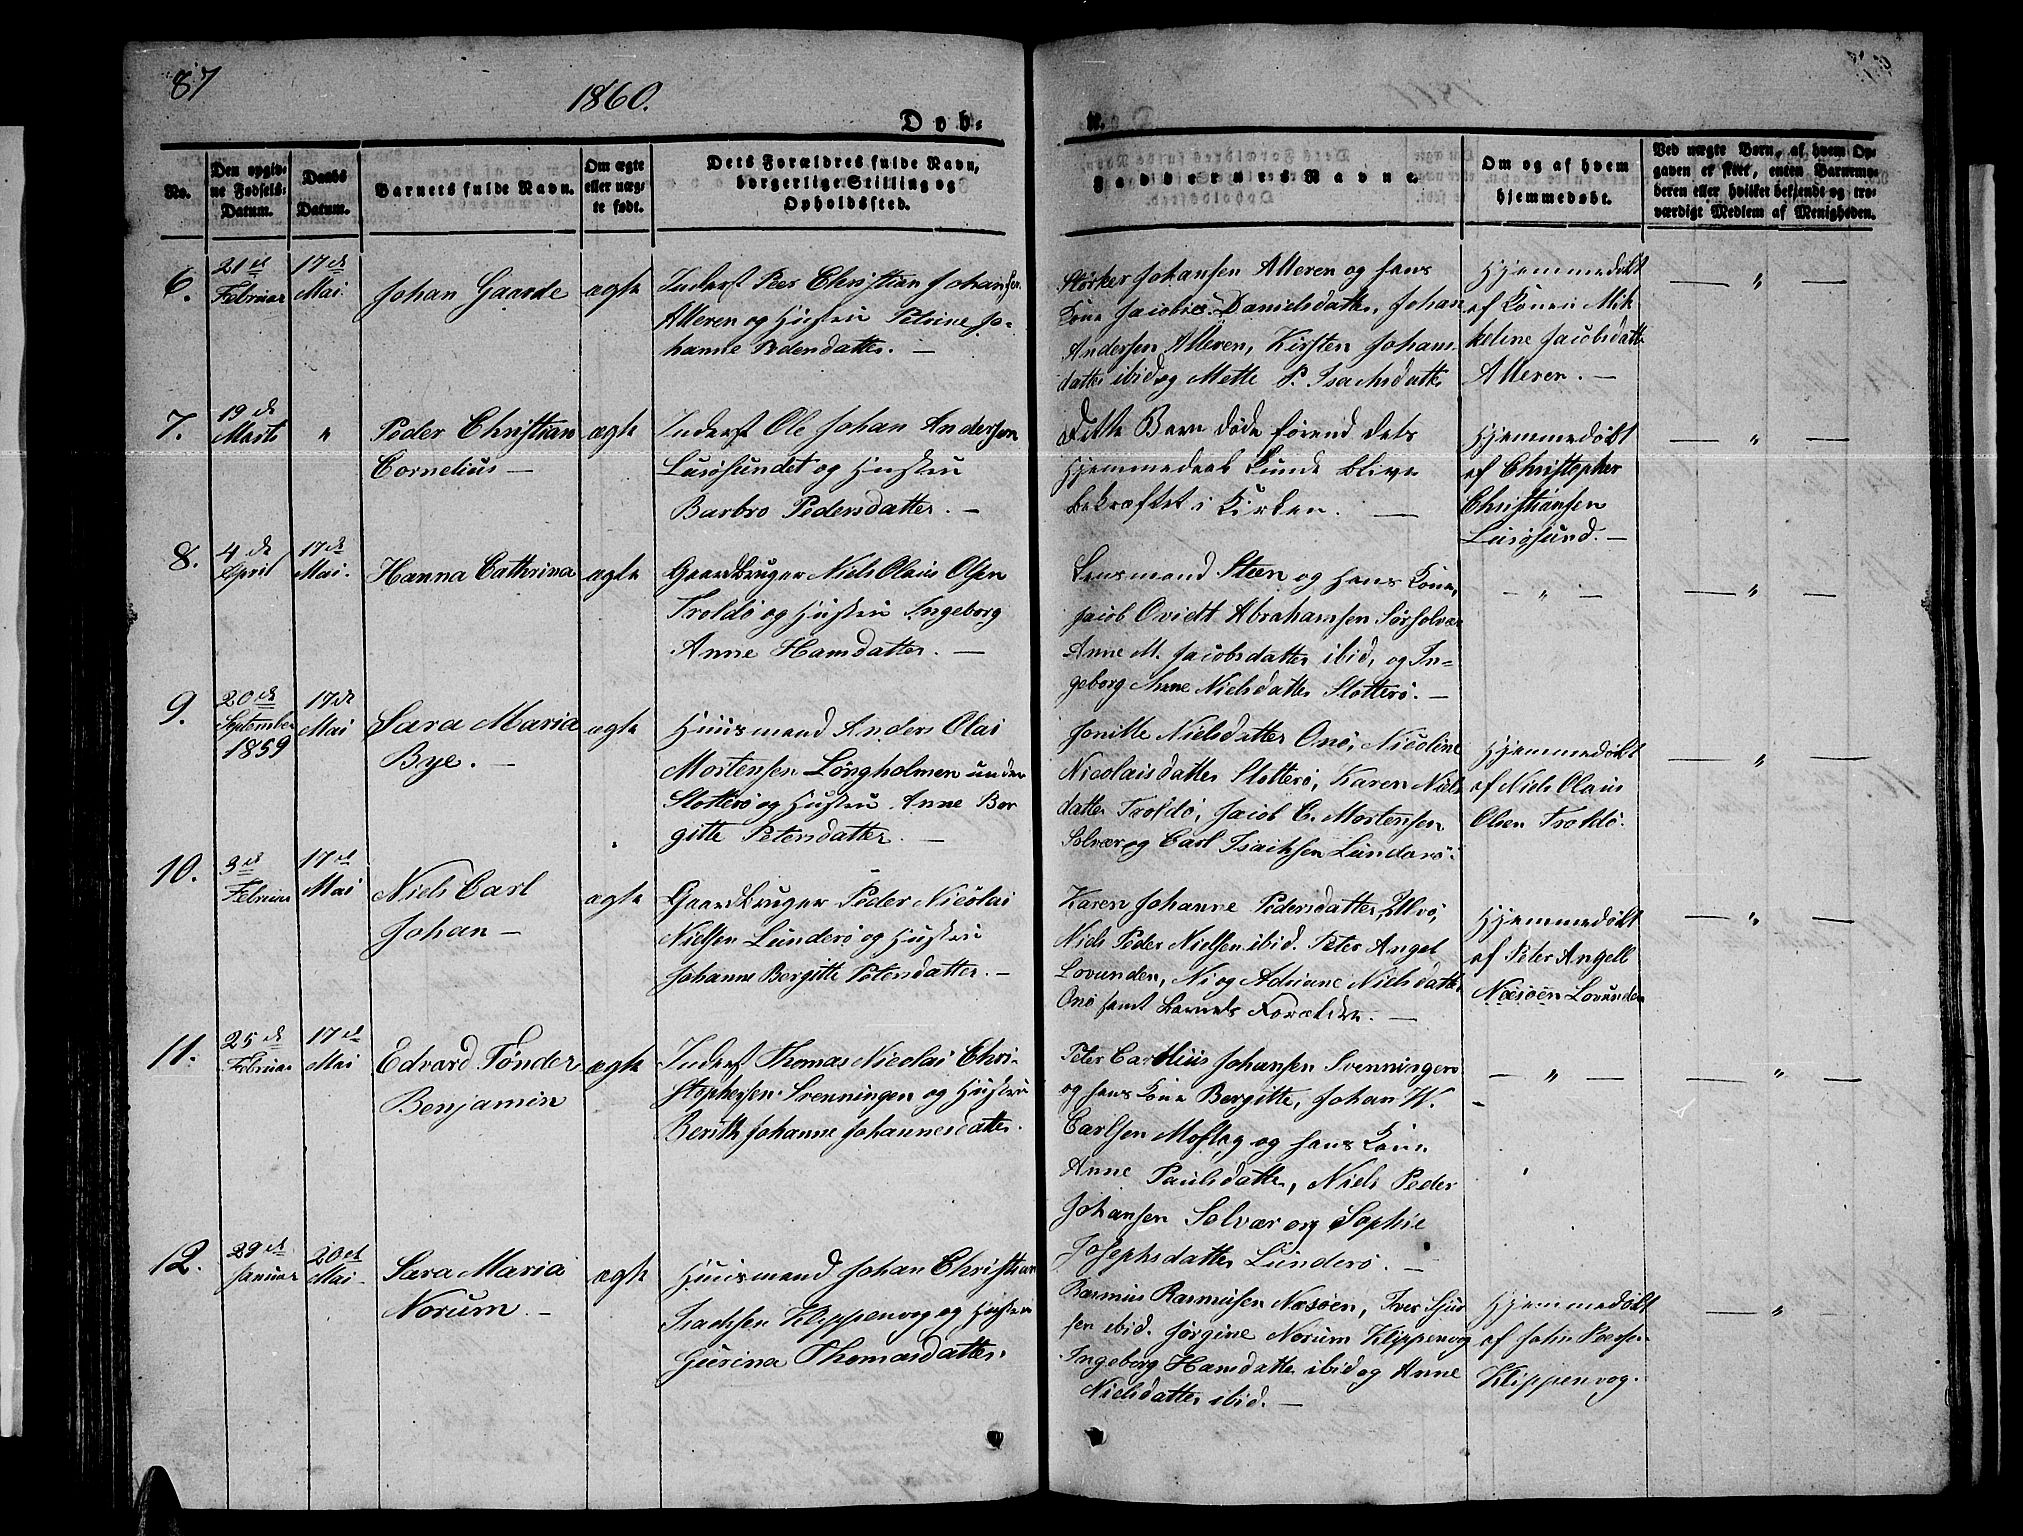 87
1860.
Døb-
te.
No.
Den opgiv-
ne Fødsels-
Datum.
Daabs
Datum.
Barnets fulde Navn.
Om ægte
eller uæg-
te født.
Dets Forældres fulde Navn,
borgerlige Stilling og
Opholdssted.
Faddernes Navne.
Om og af hvem
hjemmedøbt.
Ved uægte Børn, af hvem Op-
gaven er skeet, enten Barnemo-
deren eller hvilket bekjendt og tro-
værdigt Medlem af Menigheden.
6.
21de
Februar
17de
Mai.
Johan Gaarde
ægte
Inderst Peer Christian Johansen
Alteren og Hustru Petrine Jo-
hanne Pedersdatter. —
Størker Johansen Alteren og hans
Kone Jacobine Danielsdatter, Johan
Andersen Alteren, Kirsten Johans
datter ibid og Mette P. Isachsdatter
Hjemmedøbt
af Konen Mik-
keline Jacobsdatter
Alteren. —
— " —
7.
19de
Marts
"
Peder Christian
Cornelius —
ægte
Inderst Ole Johan Andersen
Lurøsundet og Hustru
Barbro Pedersdatter. —
Dette Barn døde førend dets
Hjemmedaab kunde blive
bekræftet i Kirken. —
Hjemmedøbt
af Christopher
Christiansen
Lurøsund. —
— " —
8.
4de
April
17de
Mai.
Hanna Cathrina
ægte
Gaardbruger Niels Olaus Olsen
Troldø og Hustru Ingeborg
Anne Hansdatter. —
Lensmand Steen og hans Kone,
Jacob Ovidt Abrahamsen Sørsolvær
Anne M. Jacobsdatter ibid, og In-
geborg Anne Nielsdatter Slotterø. —
— " —
— " —
9.
20de
September
1859
17de
Mai
Sara Maria
Bye. —
ægte
Huusmand Anders Olai
Mortensen Longholmen under
Slotterø og Hustru Anne Ber
gitte Petersdatter. —
Jonitte Nielsdatter Onø, Nicoline
Nicolaisdatter Slotterø, Karen Niels
datter Troldø, Jacob C. Mortensen
Solvær og Carl Isachsen Lunderø.
Hjemmedøbt
af Niels Olaus
Olsen Troldø.
— " —
10.
3de
Februar
17de
Mai
Niels Carl
Johan —
ægte
Gaardbruger Peder Nicolai
Nielsen Lunderø og Hustru
Johanne Bergitte Petersdatter. —
Karen Johanne Pedersdatter
Niels Peder Nielsen ibid. Peter Angel
Lovunden, Ni og Adriane Nielsdatter
Onø samt Barnets Forældre. —
Hjemmedøbt
af Peter Angell
Næsøen Lovunden
— " —
11.
25de
Februar
17de
Mai
Edvard Tønder
Benjamin
ægte
Inderst Thomas Nicolai Chri-
stophersen Svenningen og Hustru
Berith Johanne Johannesdatter.
Peter Carelius Johansen Svenningen
og hans Kone Bergitte, Johan W.
Carlsen Moflag og hans Kone
Anne Paulsdatter, Niels Peder
Johansen Solvær og Sophie
Josephsdatter Lunderø. —
— " —
— " —
12.
29de
Januar
20de
Mai
Sara Maria
Norum. —
ægte
Huusmand Johan Christian
Isachsen Klippenvog og Hustru
Gurina Thomasdatter.
Rasmus Rasmusen Næsøen, Iver Sjur
sen ibid. Jørgine Norum Klippenvog
Ingeborg Hansdatter ibid og Anne
Nielsdatter ibid. —
Hjemmedøbt
af John Peersen
Klippenvog.
— " —